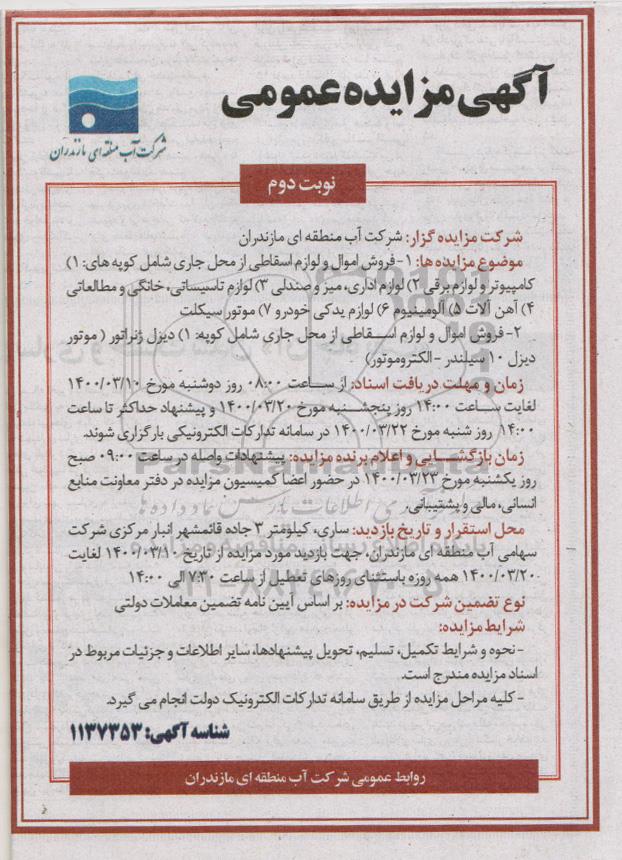 آگهی مزایده عمومی
شرکت آب منطقه ای مازندران
نوبت دوم
شرکت مزایده گزار: شرکت آب منطقه ای مازندران
موضوع مزایده ها: ۱- فروش اموال و لوازم اسقاطی از محل جاری شامل کوپه های: ۱)
کامپیوتر و لوازم برقی ۲) لوازم اداری، میز و صندلی ۳) لوازم تاسیساتی، خانگی و مطالعاتی
۴) آهن آلات ۵) آلومینیوم ۶) لوازم یدکی خودرو ۷) موتور سیکلت
۲- فروش اموال و لوازم اسقاطی از محل جاری شامل کوپه: ۱) دیزل ژنراتور ( موتور
دیزل ۱۰ سیلندر - الکتروموتور)
زمان و مهلت دریافت اسناد: از ساعت ۰۸:۰۰ روز دوشنبه مورخ ۱۴۰۰/۰۳/۱۰
لغایت ساعت ۱۴:۰۰ روز پنجشنبه مورخ ۱۴۰۰/۰۳/۲۰ و پیشنهاد حداکثر تا ساعت
۱۴:۰۰ روز شنبه مورخ ۱۴۰۰/۰۳/۲۲ در سامانه تدارکات الکترونیکی بارگزاری شوند.
زمان بازگشایی و اعلام برنده مزایده: پیشنهادات واصله در ساعت ۰۹:۰۰ صبح
روز یکشنبه مورخ ۱۴۰۰/۰۳/۲۳ در حضور اعضا کمیسیون مزایده در دفتر معاونت منابع
انسانی، مالی و پشتیبانی.
محل استقرار و تاریخ بازدید: ساری، کیلومتر ۳ جاده قائمشهر انبار مرکزی شرکت
سهامی آب منطقه ای مازندران، جهت بازدید مورد مزایده از تاریخ ۱۴۰۰/۰۳/۱۰ لغایت
۱۴۰۰/۰۳/۲۰ همه روزه باستثنای روزهای تعطیل از ساعت ۷:۳۰ الی ۱۴:۰۰
نوع تضمین شرکت در مزایده: بر اساس آیین نامه تضمین معاملات دولتی
شرایط مزایده:
- نحوه و شرایط تکمیل، تسلیم، تحویل پیشنهادها، سایر اطلاعات و جزئیات مربوط در
اسناد مزایده مندرج است.
- کلیه مراحل مزایده از طریق سامانه تدارکات الکترونیک دولت انجام می گیرد.
شناسه آگهی: ۱۱۳۷۳۵۳
روابط عمومی شرکت آب منطقه ای مازندران
ParsNamadData